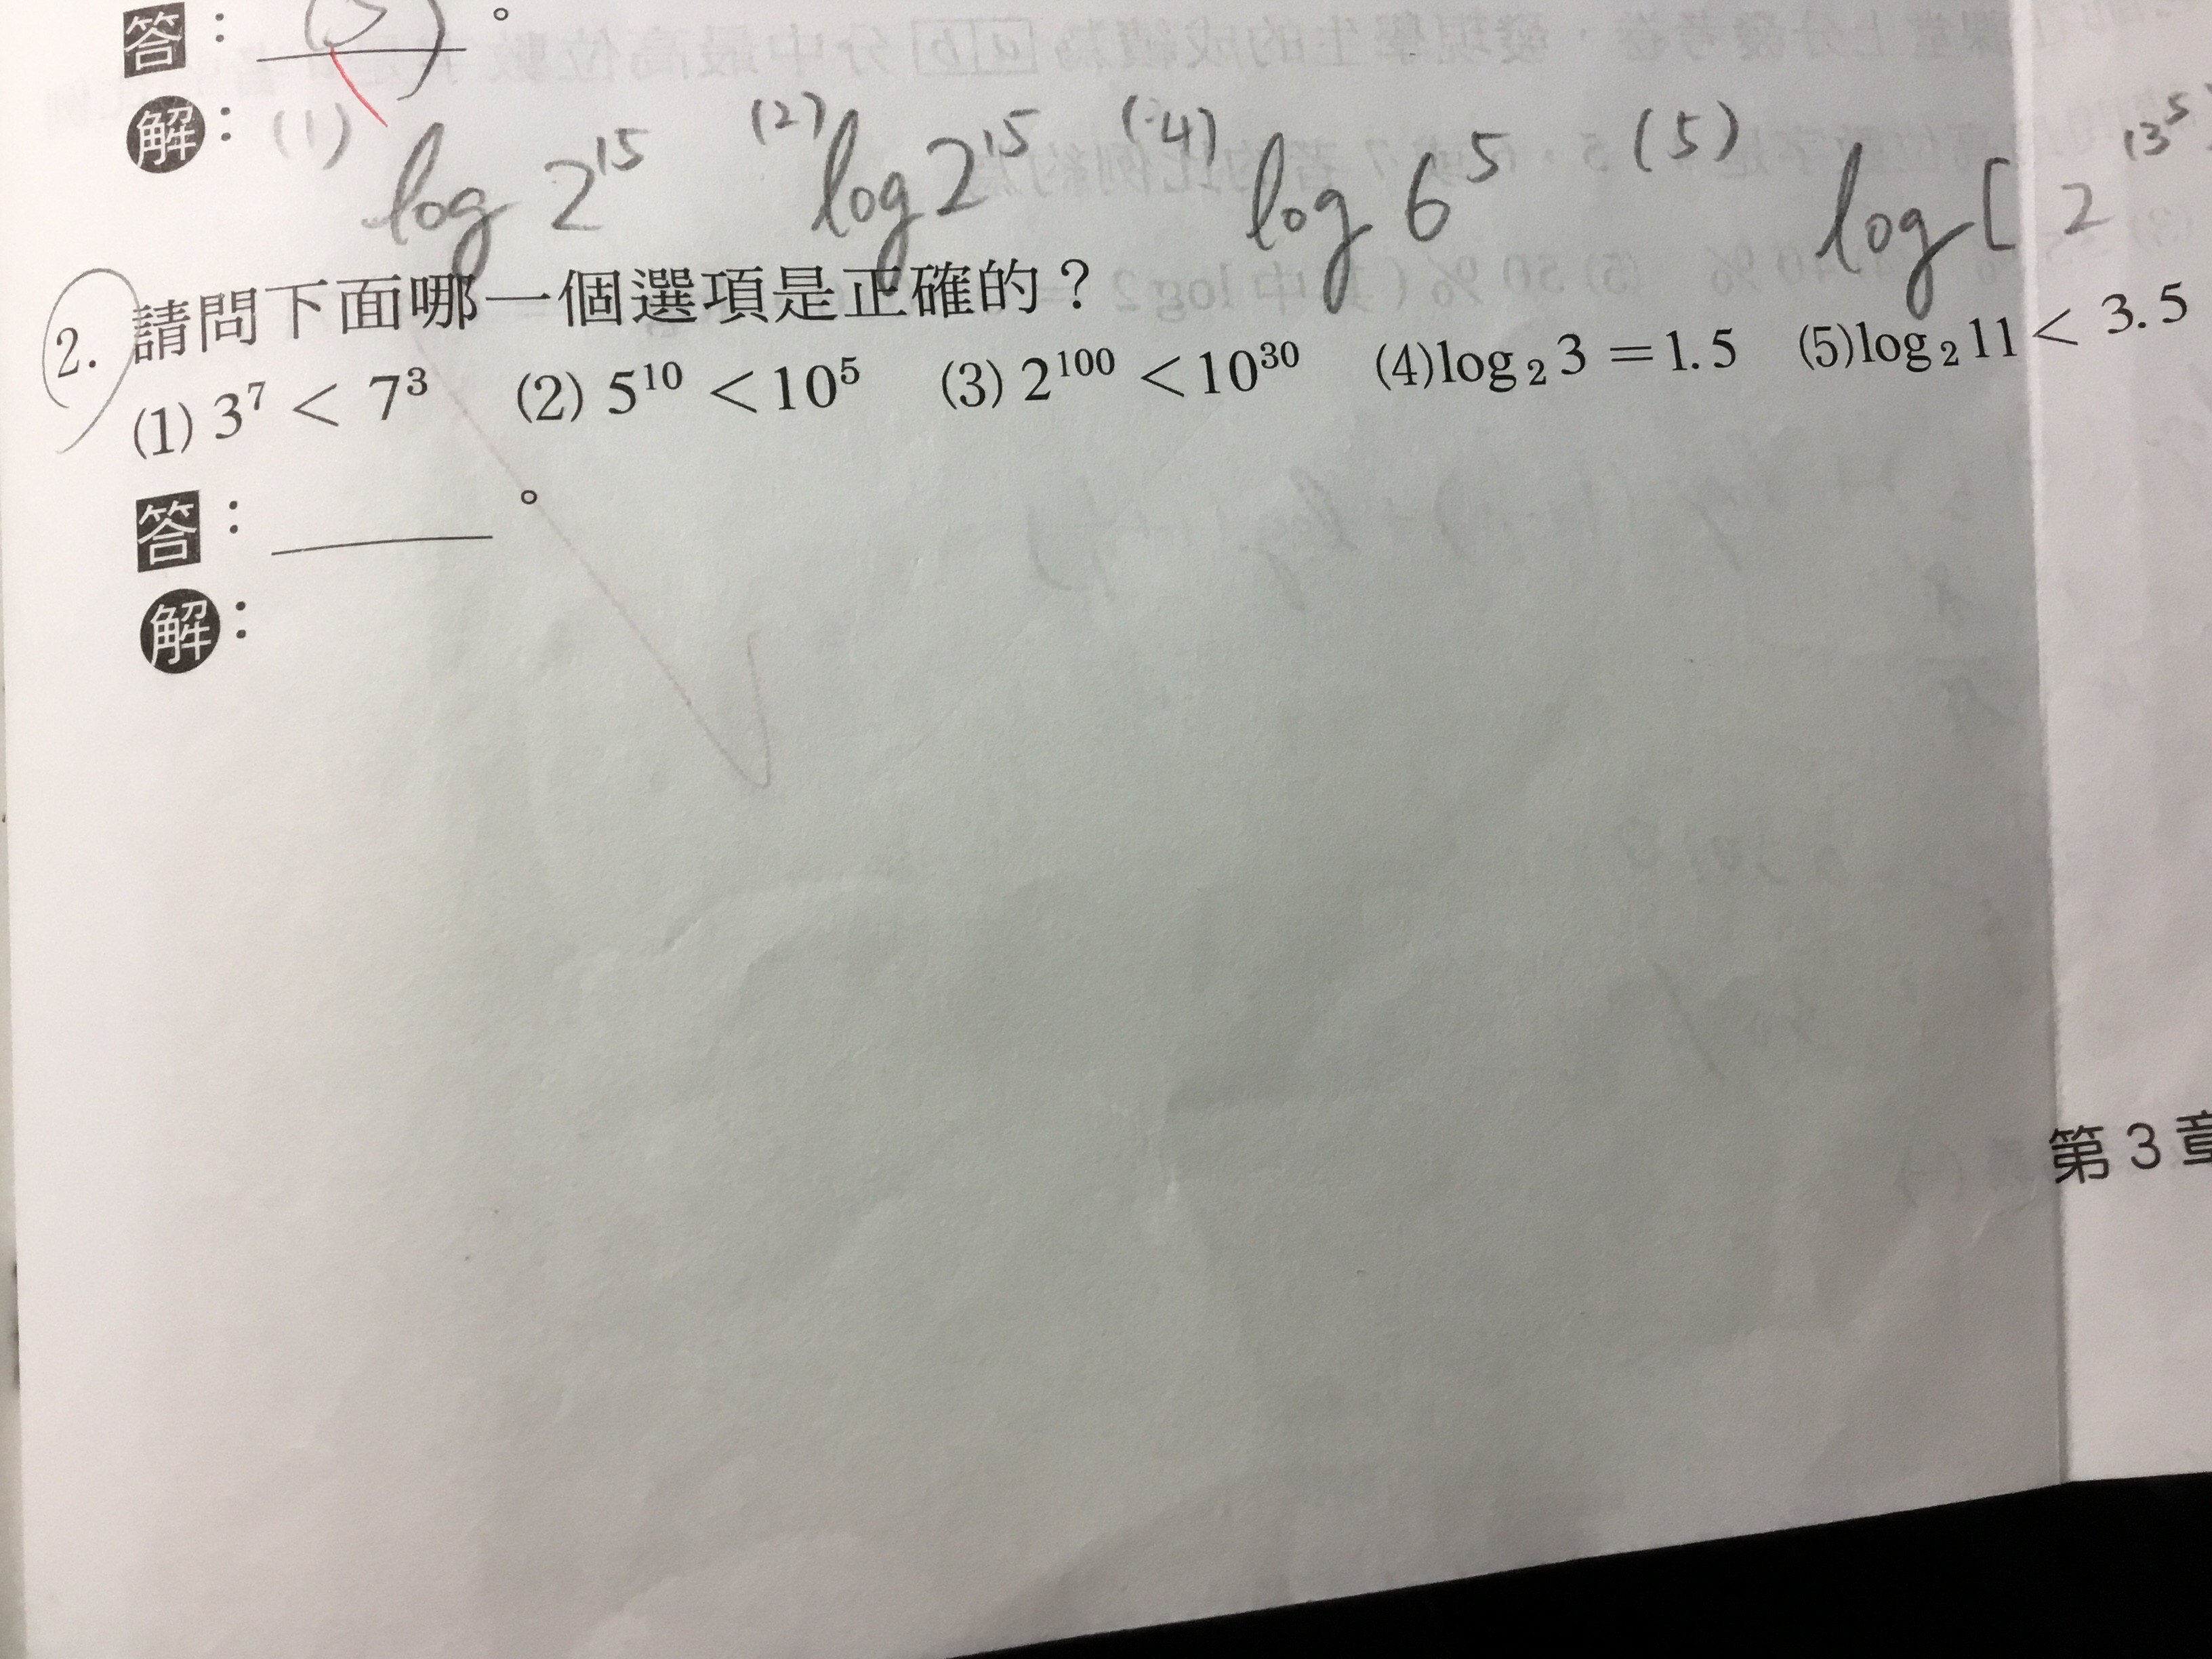 答：(5)。
解：(1) log 2¹⁵ (2) log 2¹⁵ (4) log 6⁵ (5) log [ 2
2. 請問下面哪一個選項是正確的？
(1) 3⁷ < 7³ (2) 5¹⁰ < 10⁵ (3) 2¹⁰⁰ < 10³⁰ (4) log₂3 = 1.5 (5) log₂11 < 3.5
答：＿＿＿。
解：
第 3 章